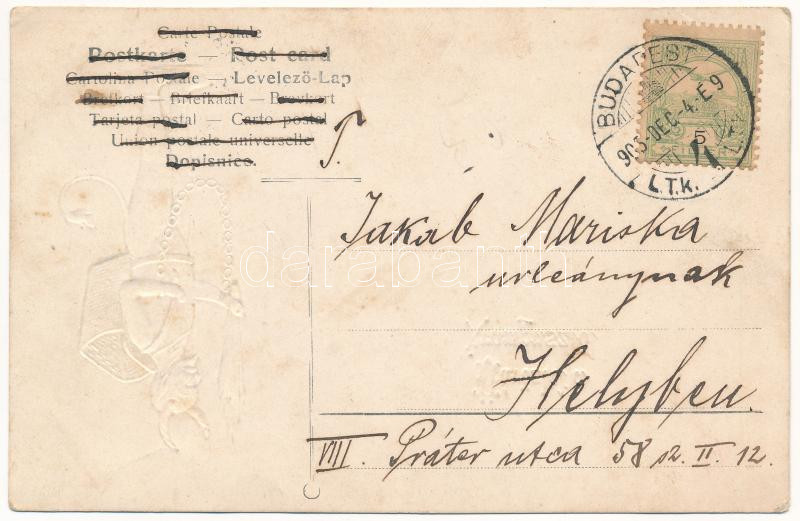 Carte Postale
Postkarte — Post card
Cartolina Postale — Levelező-Lap
Brefkort — Briefkaart — Brevkort
Tarjeta postal — Carto postal
Union postale universelle
Dopisnice.
T.
BUDAPEST
905 DEC. 4. É 9
I.T.K.
5
Jakab Mariska
urleánynak
Helyben.
VIII. Práter utca 58 sz. II. 12.
darabanth